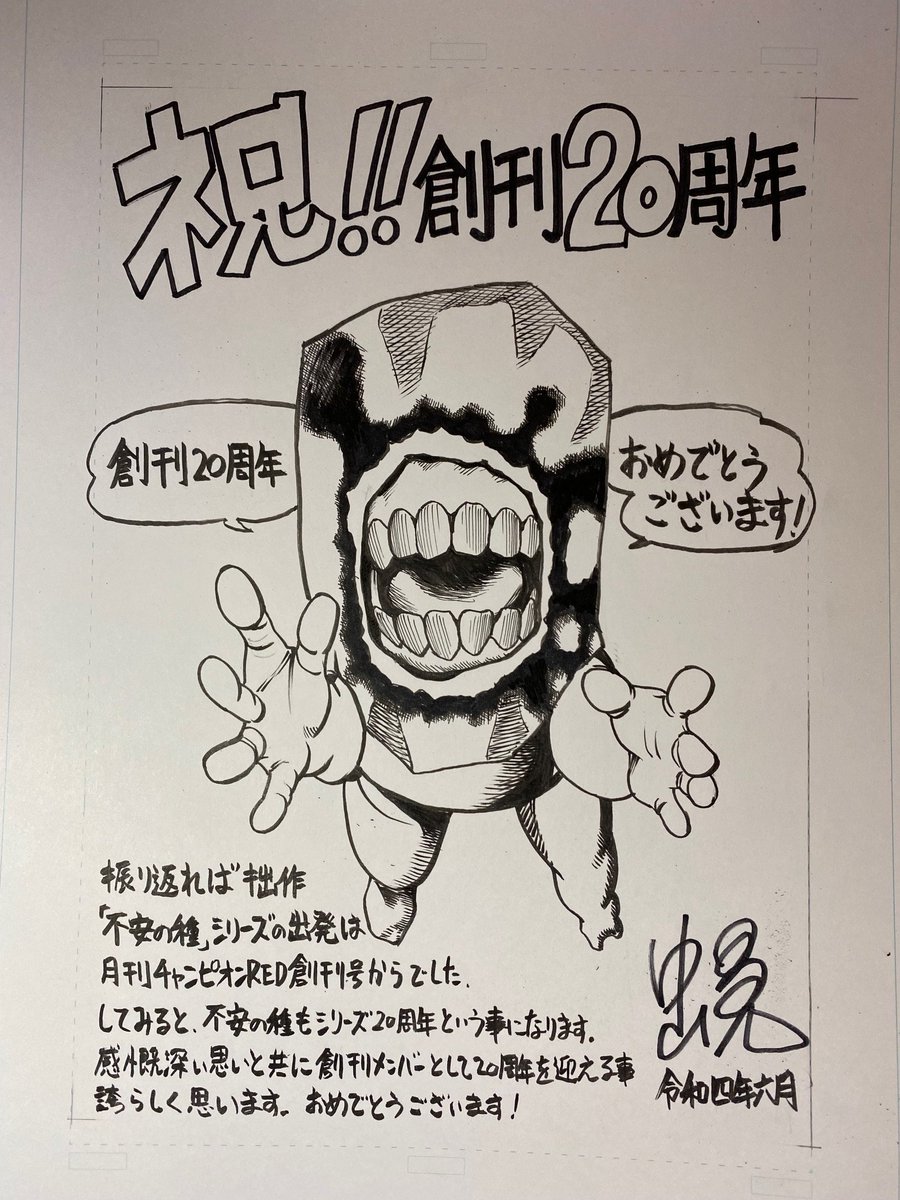 祝!!創刊20周年
創刊20周年
おめでとう
ございます!
振り返れば拙作
「不安の種」シリーズの出発は
月刊チャンピオンRED創刊号からでした。
してみると、不安の種もシリーズ20周年という事になります。
感慨深い思いと共に創刊メンバーとして20周年を迎える事
誇らしく思います。おめでとうございます!
令和四年六月